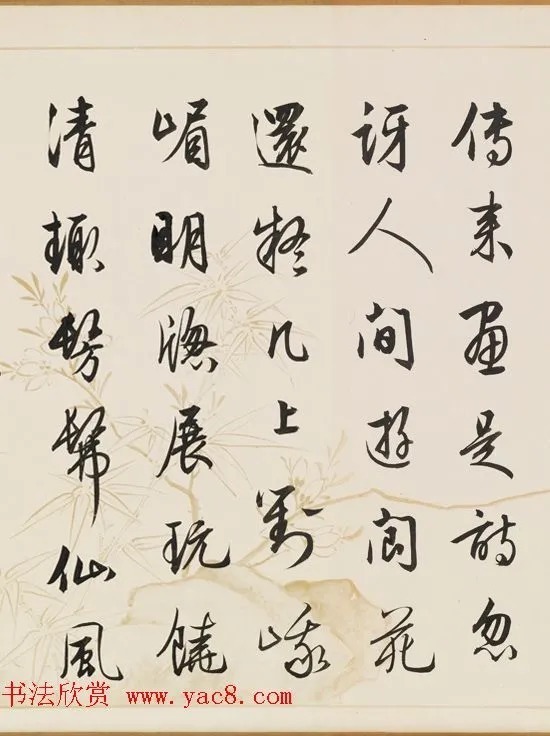 傳来畫是詩忽
訝人間遊閬苑
還疑几上對峨
嵋明牕展玩饒
清趣髣髴仙風
书法欣赏 www.yac8.com